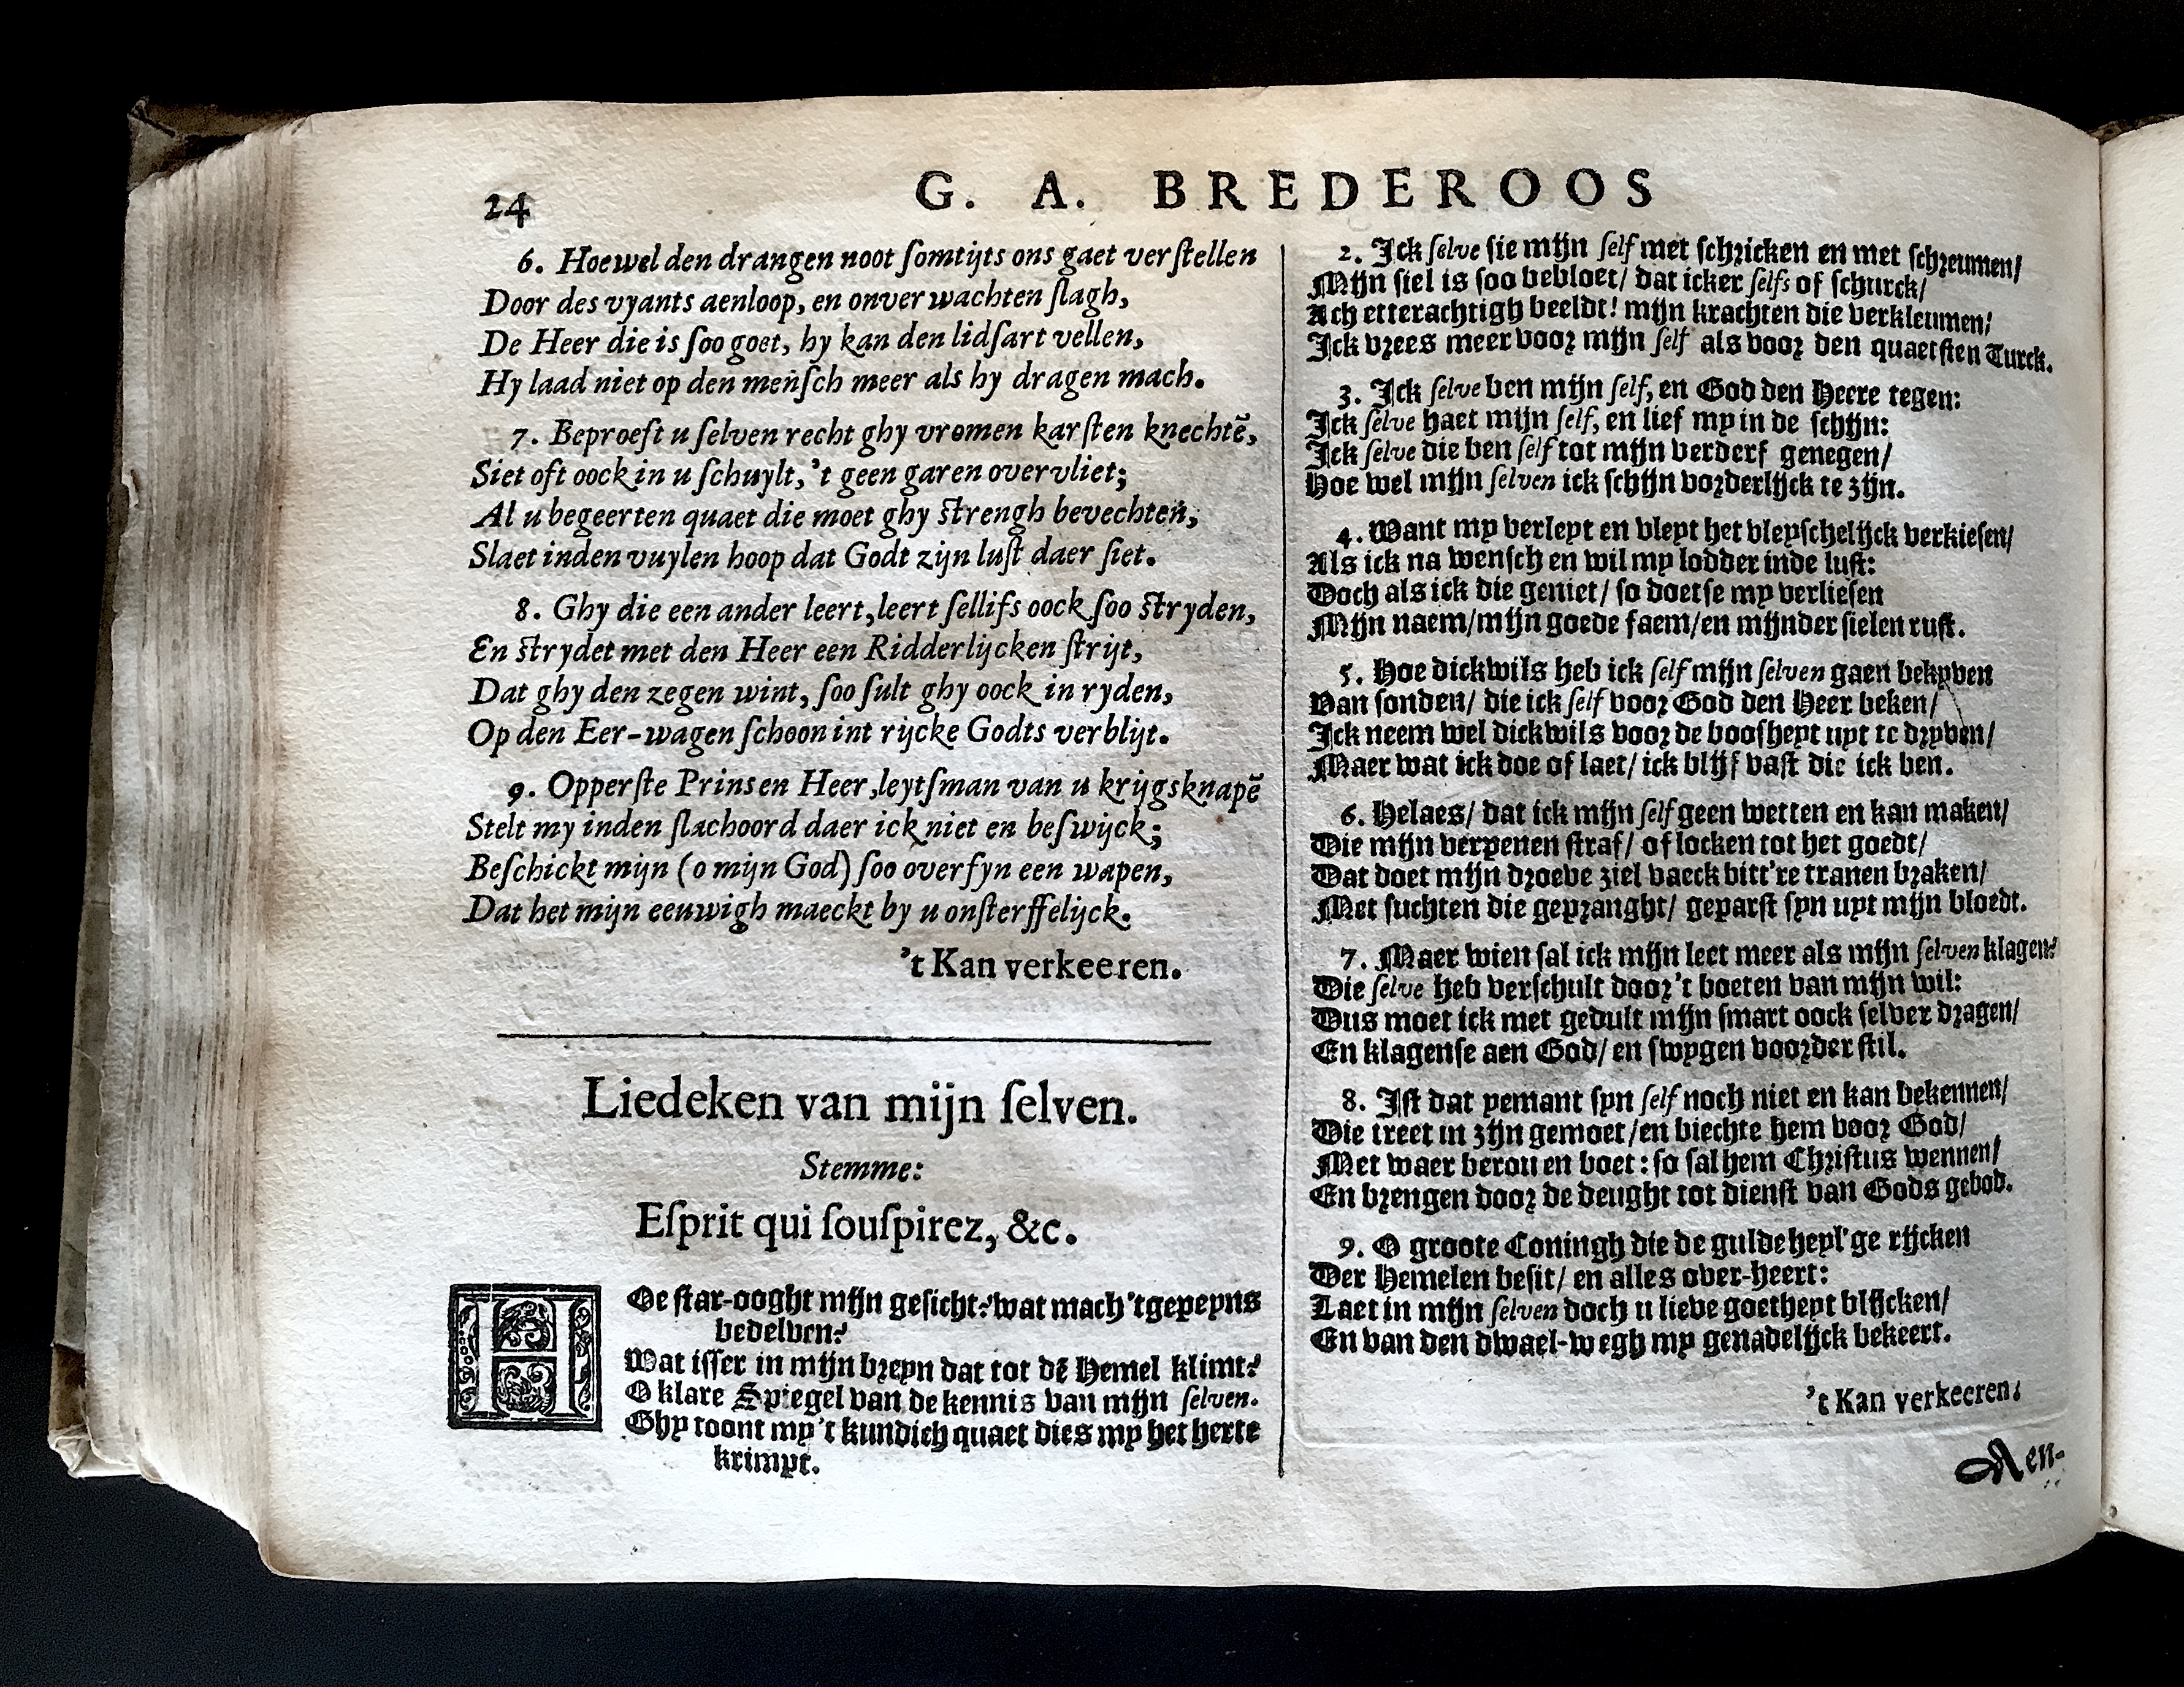 24
G. A. BREDEROOS
6. Hoewel den drangen noot ſomtijts ons gaet verſtellen
Door des vyants aenloop, en onverwachten ſlagh,
De Heer die is ſoo goet, hy kan den lidſart vellen,
Hy laad niet op den menſch meer als hy dragen mach.
7. Beproeft u ſelven recht ghy vromen karſten knechtẽ,
Siet oft oock in u ſchuylt, 't geen garen overvliet;
Al u begeerten quaet die moet ghy ſtrengh bevechten,
Slaet inden vuylen hoop dat Godt zijn luſt daer ſiet.
8. Ghy die een ander leert, leert ſellifs oock ſoo ſtryden,
En ſtrydet met den Heer een Ridderlijcken ſtrijt,
Dat ghy den zegen wint, ſoo ſult ghy oock in ryden,
Op den Eer-wagen ſchoon int rijcke Godts verblijt.
9. Opperſte Prins en Heer, leytſman van u krijgsknapẽ
Stelt my inden ſlachoord daer ick niet en beſwijck;
Beſchickt mijn (o mijn God) ſoo overfyn een wapen,
Dat het mijn eeuwigh maeckt by u onſterffelijck.
't Kan verkeeren.
Liedeken van mijn ſelven.
Stemme:
Eſprit qui ſouſpirez, &c.
HOe ſtar-ooght mijn geſicht? wat mach 't gepeyns
bedelven?
Wat iſſer in mijn breyn dat tot dẽ Hemel klimt?
O klare Spiegel van de kennis van mijn ſelven.
Ghy toont my 't kundich quaet dies my het herte
krimpt.
2. Ick ſelve ſie mijn ſelf met ſchricken en met ſchreumen/
Mijn ſiel is ſoo bebloet/ dat icker ſelfs of ſchurck/
Ach etterachtigh beeldt! mijn krachten die verkleumen/
Ick vrees meer voor mijn ſelf als voor den quaetſten Turck.
3. Ick ſelve ben mijn ſelf, en God den Heere tegen:
Ick ſelve haet mijn ſelf, en lief my in de ſchijn:
Ick ſelve die ben ſelf tot mijn verderf genegen/
Hoe wel mijn ſelven ick ſchijn vorderlijck te zijn.
4. Want my verleyt en vleyt het vleyſchelijck verkieſen/
Als ick na wenſch en wil my lodder inde luſt:
Doch als ick die geniet/ ſo doetſe my verlieſen
Mijn naem/ mijn goede faem/ en mijnder ſielen ruſt.
5. Hoe dickwils heb ick ſelf mijn ſelven gaen bekyven
Van ſonden/ die ick ſelf voor God den Heer beken/
Ick neem wel dickwils voor de booſheyt uyt te dryven/
Maer wat ick doe of laet/ ick blijf vaſt die ick ben.
6. Helaes/ dat ick mijn ſelf geen wetten en kan maken/
Die mijn verpenen ſtraf/ of locken tot het goedt/
Dat doet mijn droeve ziel vaeck bitt're tranen braken/
Met ſuchten die gepranght/ geparſt ſyn uyt mijn bloedt.
7. Maer wien ſal ick mijn leet meer als mijn ſelven klagen?
Die ſelve heb verſchult door 't boeten van mijn wil:
Dus moet ick met gedult mijn ſmart oock ſelver dragen/
En klagenſe aen God/ en ſwygen voorder ſtil.
8. Iſt dat yemant ſyn ſelf noch niet en kan bekennen/
Die treet in zijn gemoet/ en biechte hem voor God/
Met waer berou en boet: ſo ſal hem Chriſtus wennen/
En brengen door de deught tot dienſt van Gods gebod.
9. O groote Coningh die de gulde heyl'ge rijcken
Der Hemelen beſit/ en alles over-heert:
Laet in mijn ſelven doch u lieve goetheyt blijcken/
En van den dwael-wegh my genadelijck bekeert.
't Kan verkeeren.
Aen-